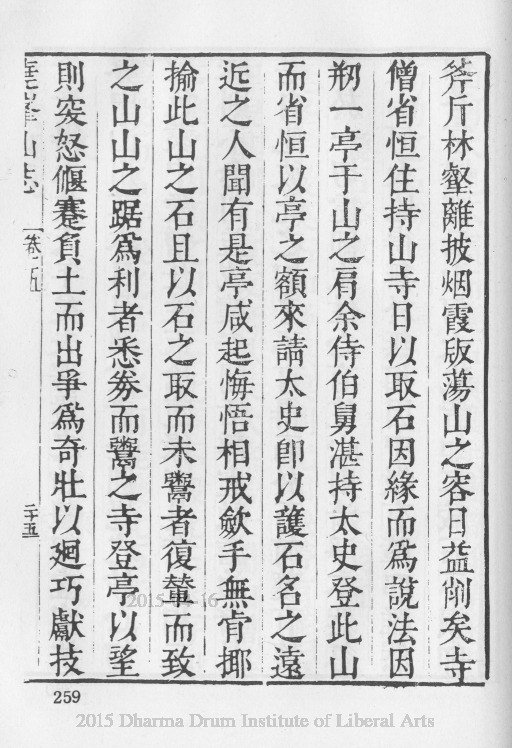 斧斤林壑離披烟霞版蕩山之容日益削矣寺
僧省恒住持山寺日以取石因緣而爲說法因
剏一亭于山之肩余侍伯舅湛持太史登此山
而省恒以亭之額來請太史卽以護石名之遠
近之人聞有是亭咸起悔悟相戒歛手無肯揶
揄此山之石且以石之取而未鬻者復輦而致
之山山之踞爲利者悉劵而鬻之寺登亭以望
則突怒偃蹇負土而出爭爲奇壯以廻巧獻技
峰山志 卷五 二十五
259
2015 Dharma Drum Institute of Liberal Arts